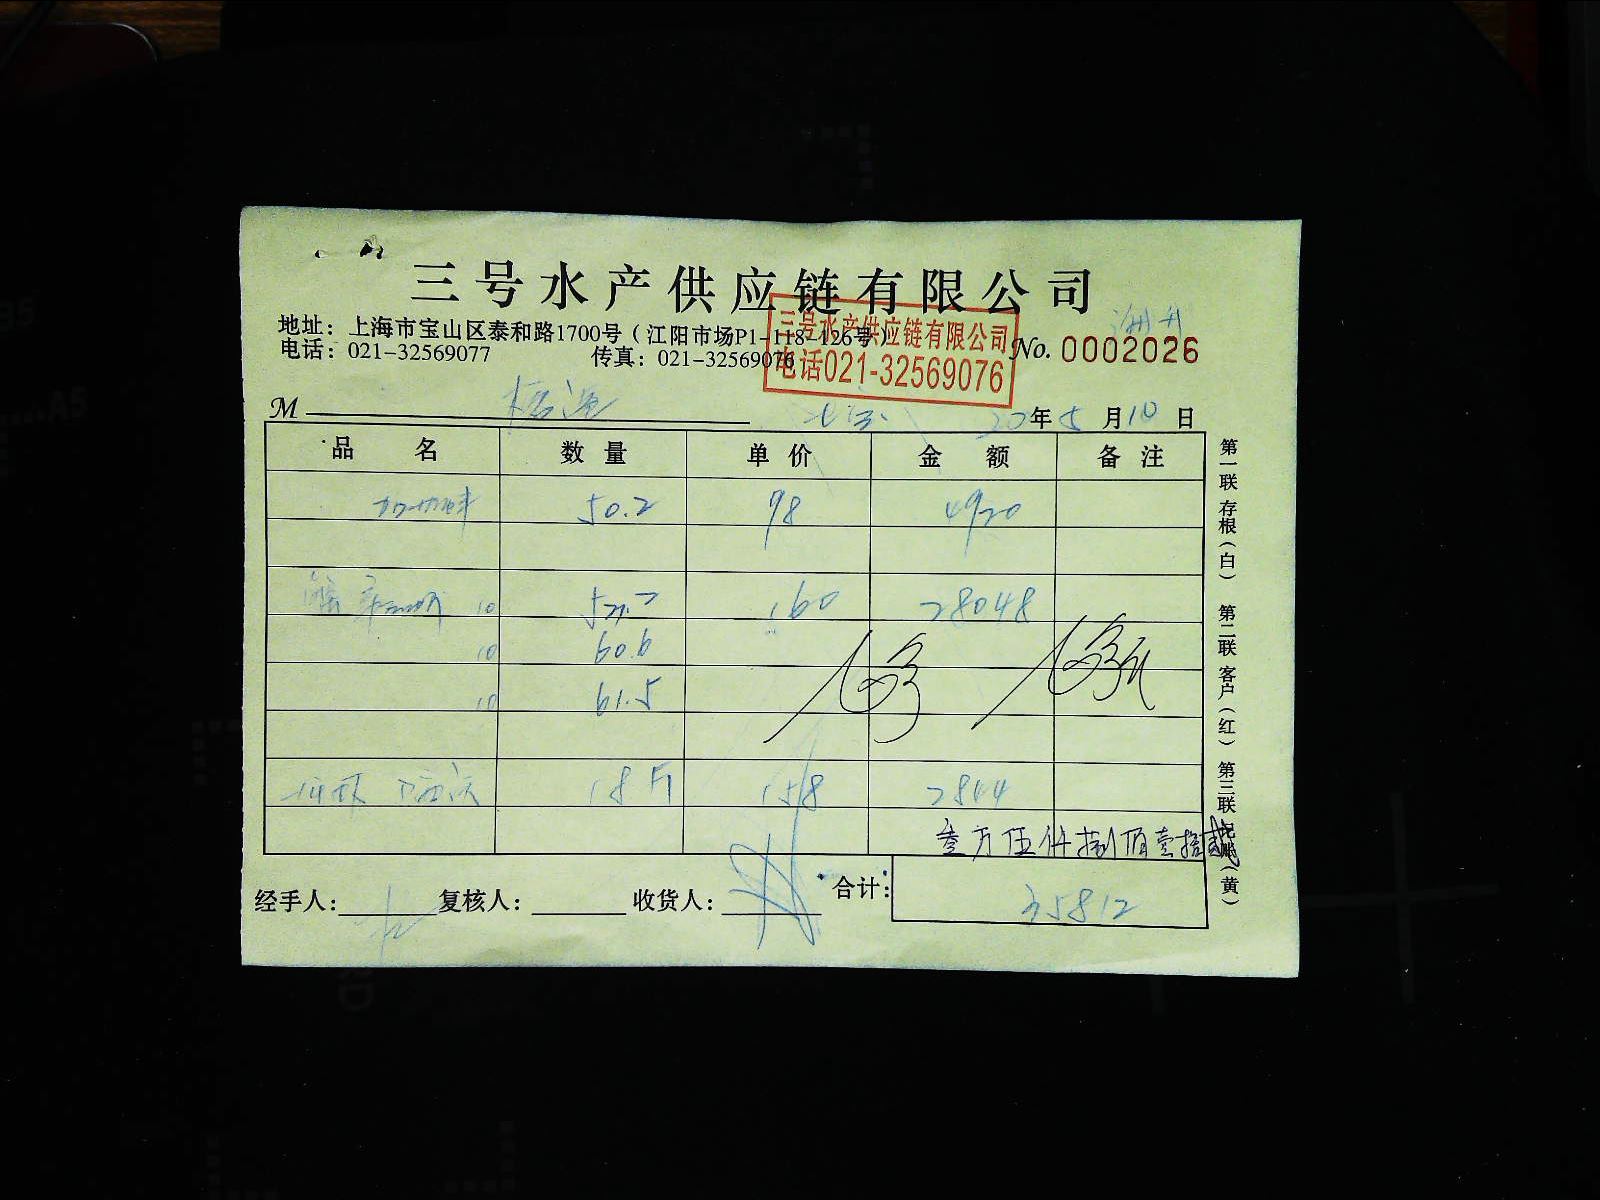 三号水产供应链有限公司
地址：上海市宝山区泰和路1700号（江阳市场P1-118-126号）
电话：021-32569077 传真：021-32569076
三号水产供应链有限公司
电话021-32569076
No. 0002026
M 20年5月10日
品名 数量 单价 金额 备注
50.2 98 4920
10 160 28048
10 60.6
10 61.5
18斤 158 2844
叁万伍仟捌佰壹拾贰
经手人： 复核人： 收货人： 合计： 35812
第一联 存根（白） 第二联 客户（红） 第三联 记账（黄）